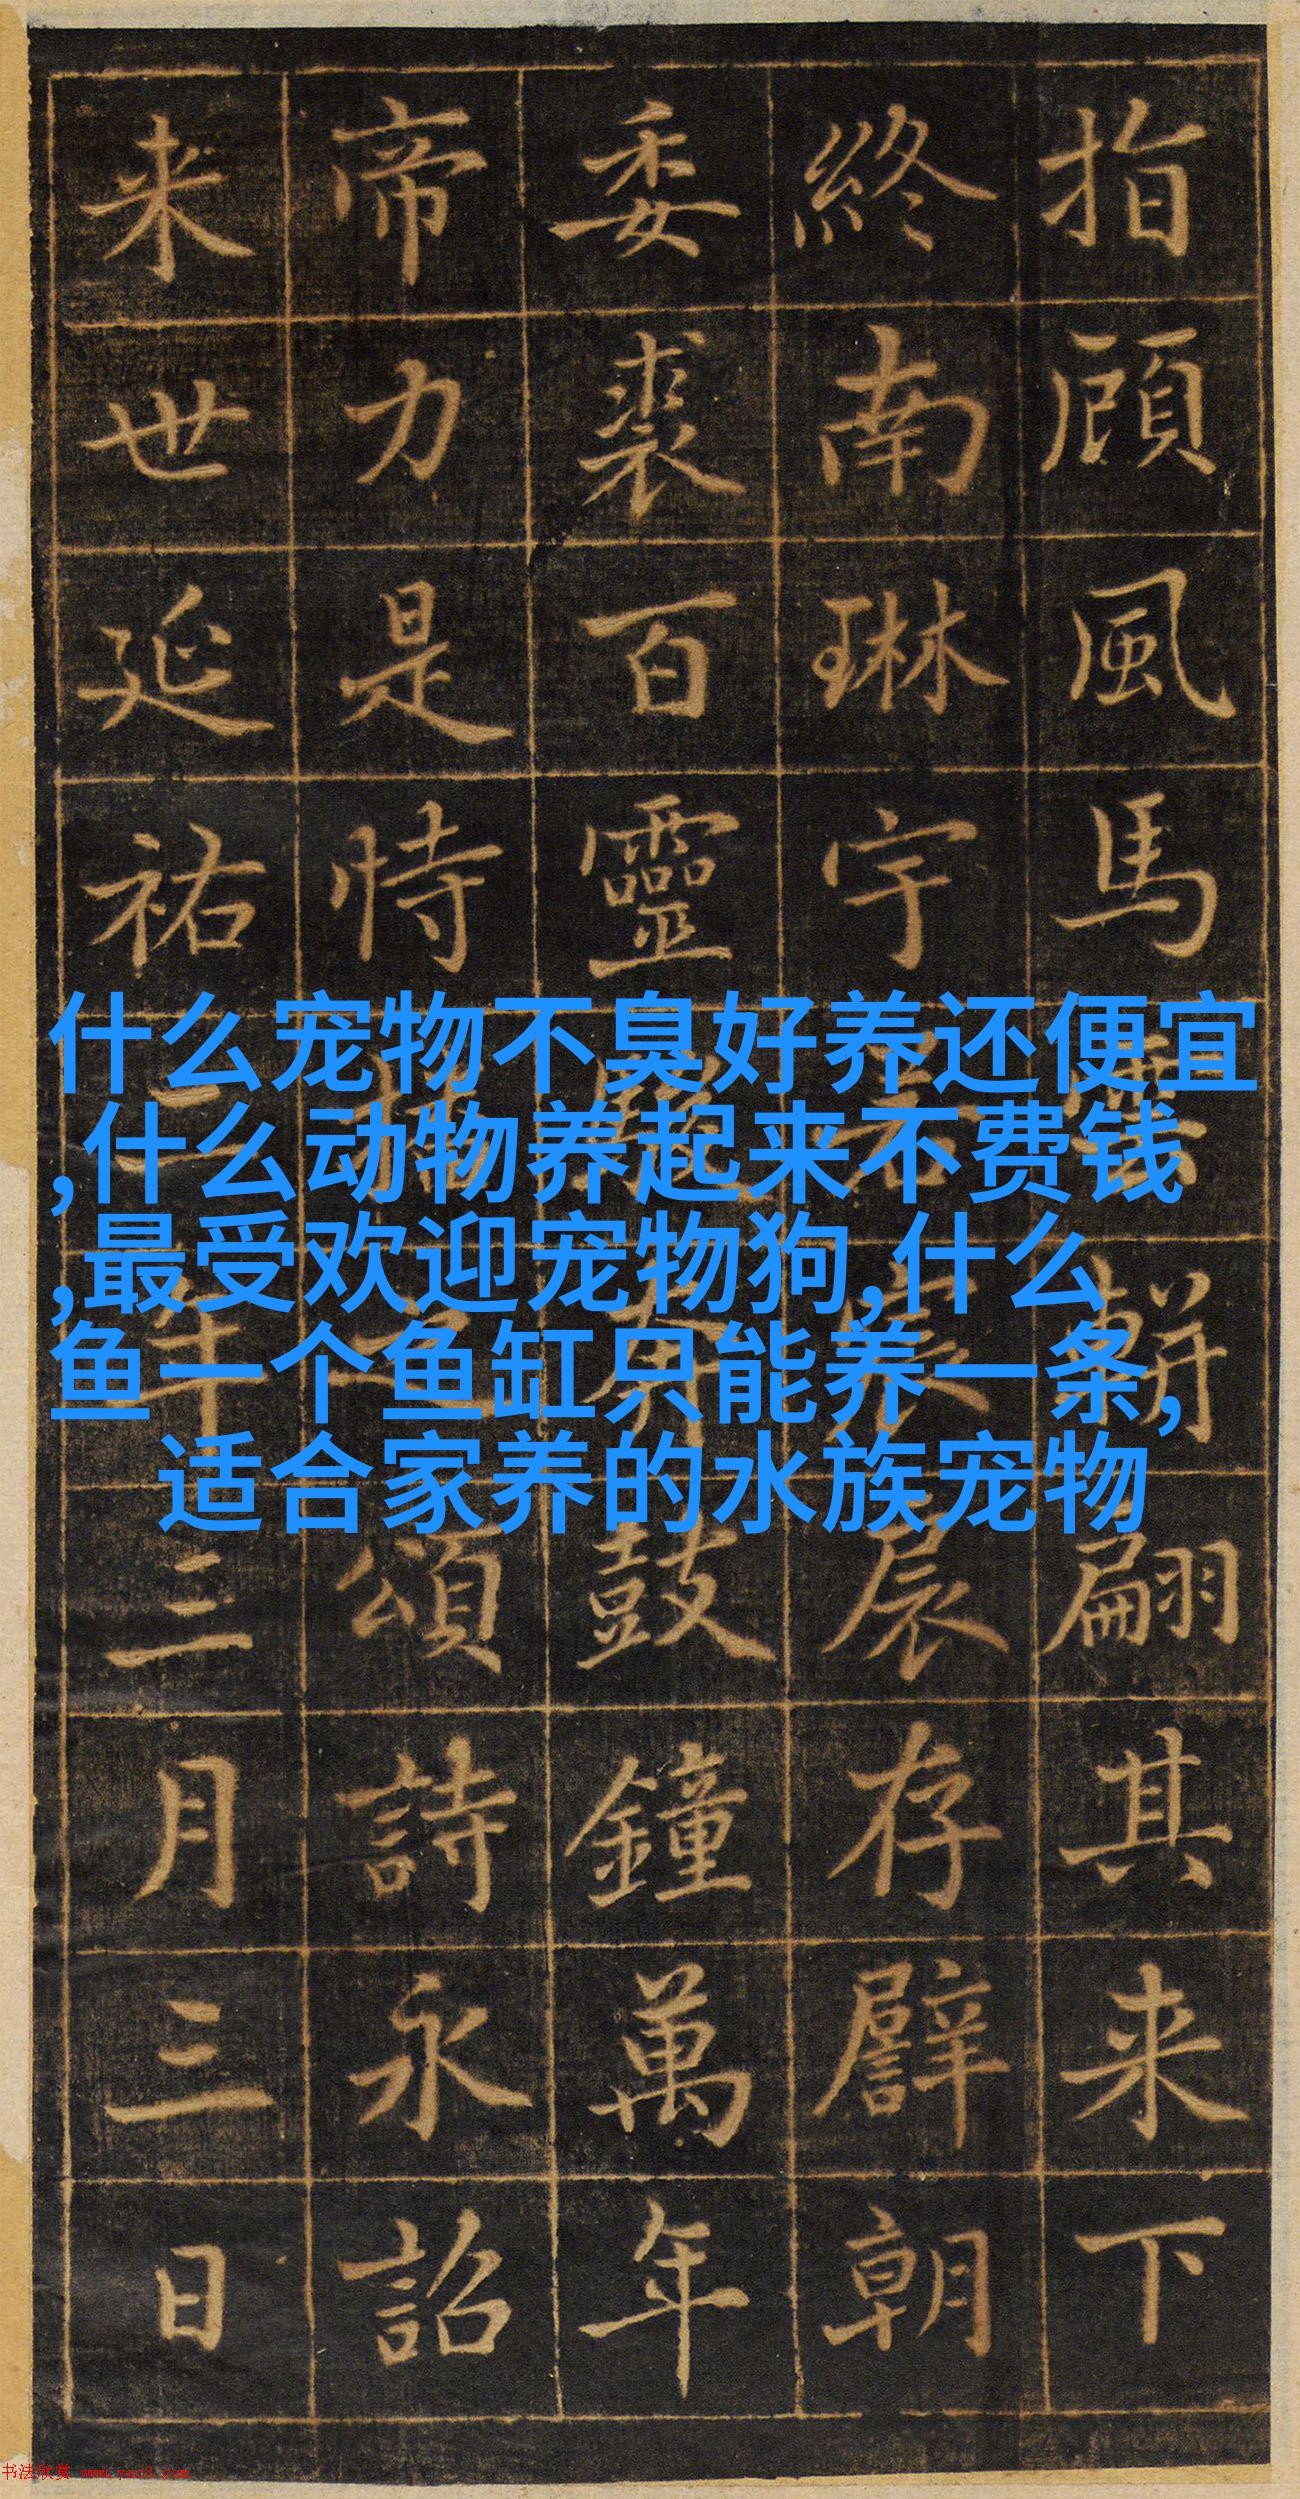 指顧風馬雲軿翩其来下
終南琳宇存譬朝
委裘百靈鼓鐘萬年
帝力是恃頌詩永詔
来世延祐二年三月三日
什么宠物不臭好养还便宜
,什么动物养起来不费钱
,最受欢迎宠物狗,什么
鱼一个鱼缸只能养一条,
适合家养的水族宠物
书法欣赏 www.yac8.com